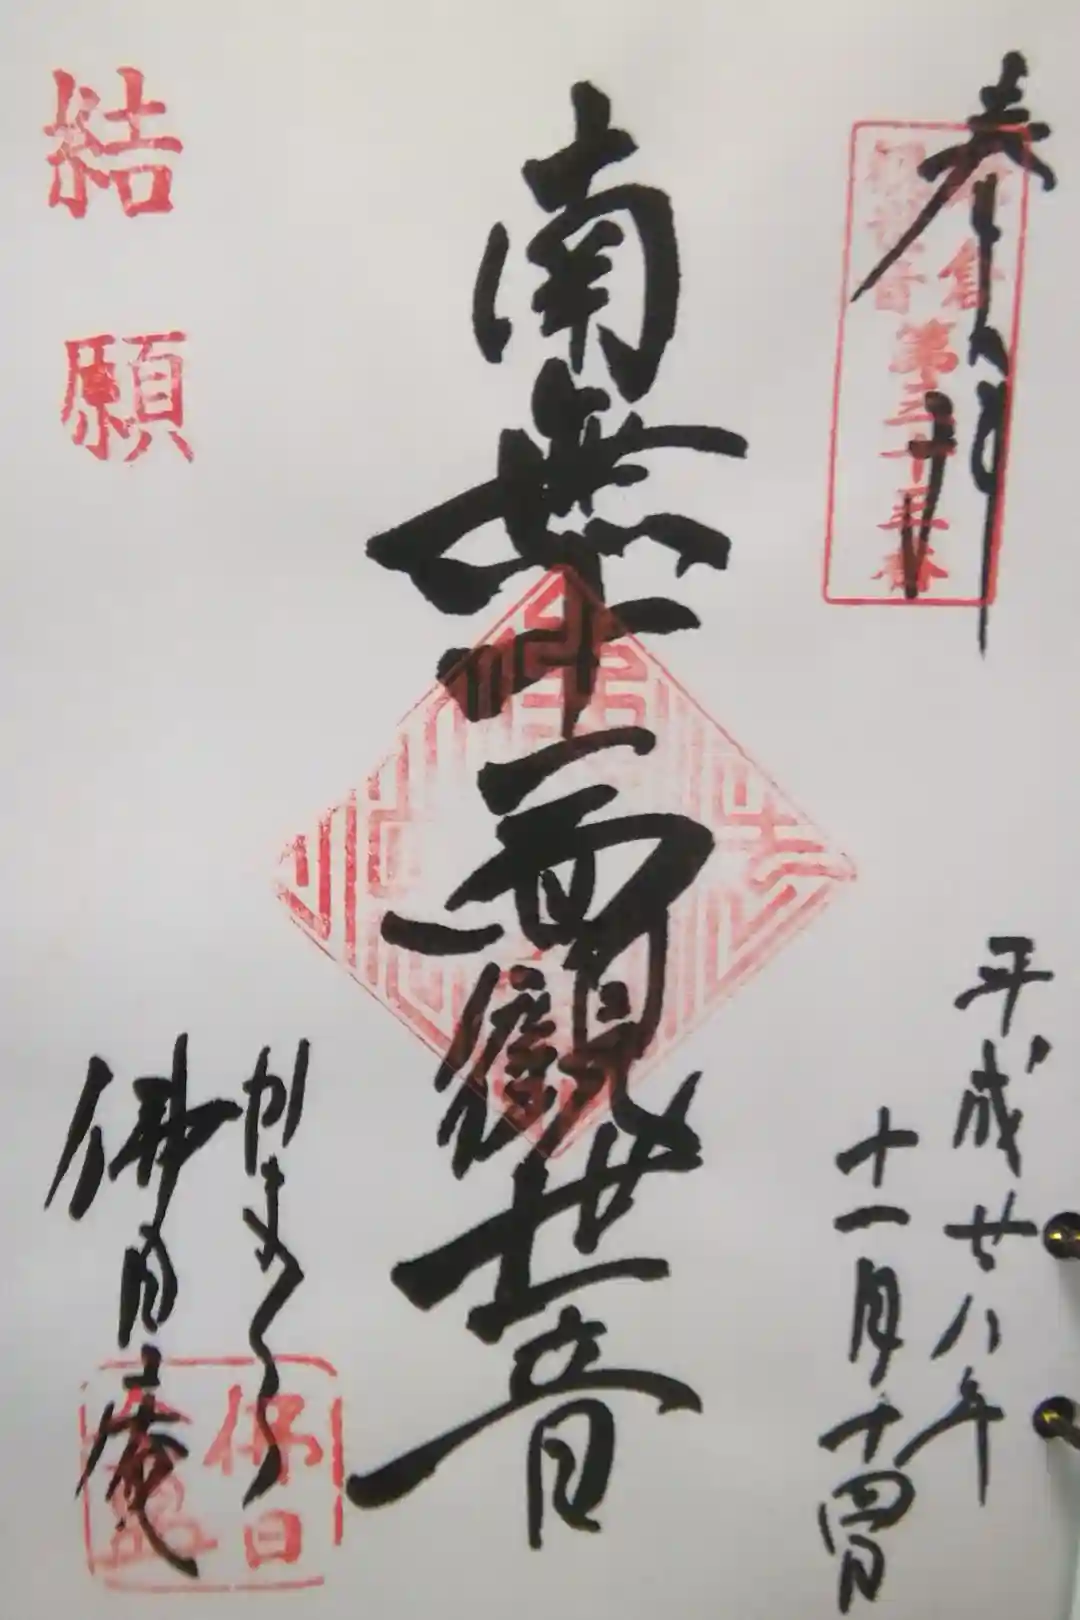 奉拝
鎌倉
観世音
第三十三番
平成廿八年
十一月十四日
南無十一面観世音
かまくら
佛日庵
結願
佛日
庵